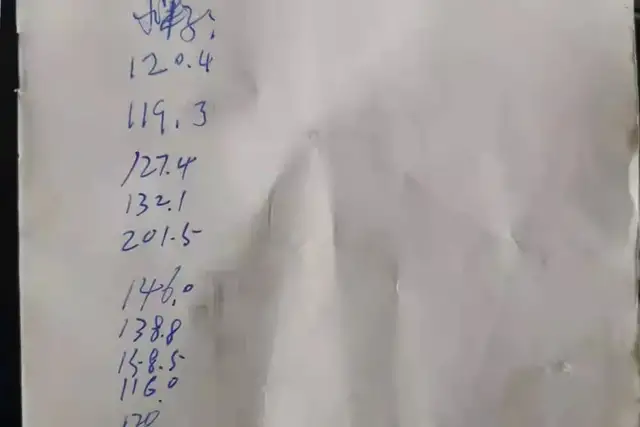 120.4
119.3
127.4
132.1
201.5
146.0
138.8
158.5
116.0